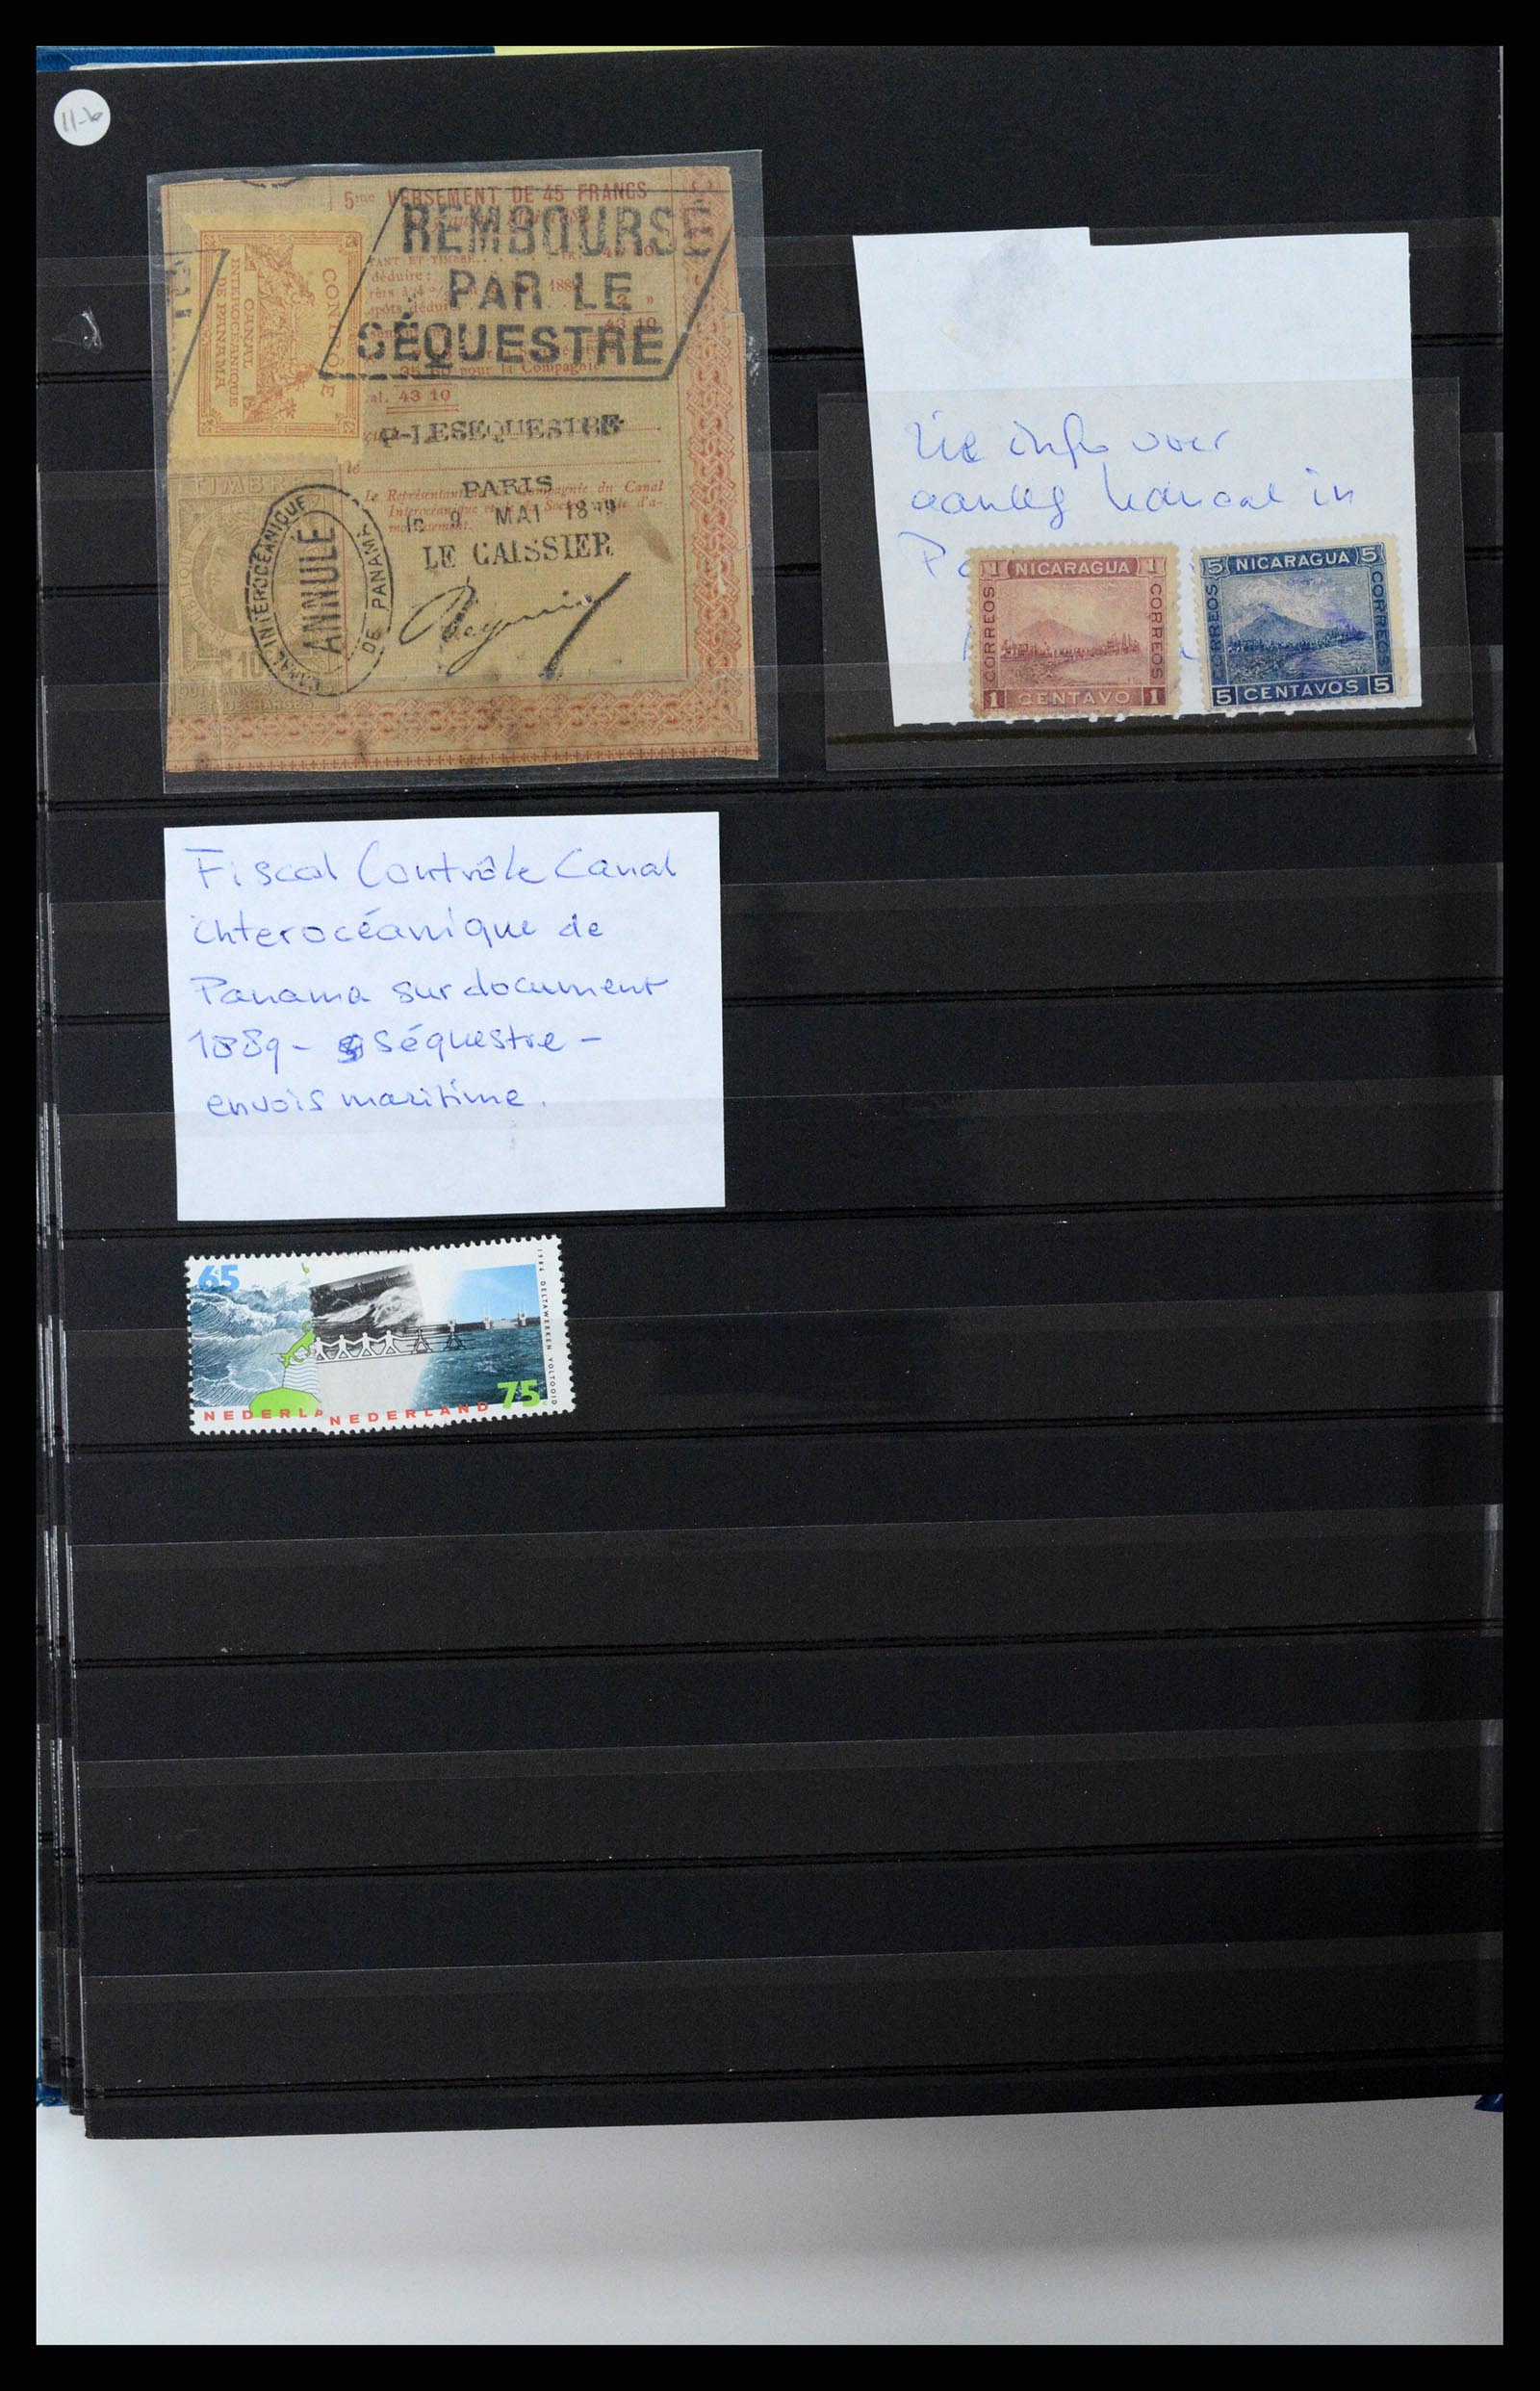 11-b
5me VERSEMENT DE 45 FRANCS
REMBOURSÉ
PAR LE
SÉQUESTRE
déduire :
43 10
pour la Compagnie
43 10
P-LE SEQUESTRE
le
PARIS
Le Représentant de la Compagnie du Canal
Interocéanique et de la Société d'a-
9 MAI
LE CAISSIER
CONTRÔLE
CANAL
INTEROCÉANIQUE
DE PANAMA
TIMBRE
CANAL INTEROCÉANIQUE
DE PANAMA
ANNULÉ
Zie info voor
aanleg kanaal in
1 NICARAGUA 1
CORREOS
CORREOS
1 CENTAVO 1
5 NICARAGUA 5
CORREOS
CORREOS
5 CENTAVOS 5
Fiscal Contrôle Canal
interocéanique de
Panama sur document
1889 - séquestre -
envois maritime.
65
NEDERLA
NEDERLAND
75
1986 DELTAWERKEN VOLTOOID